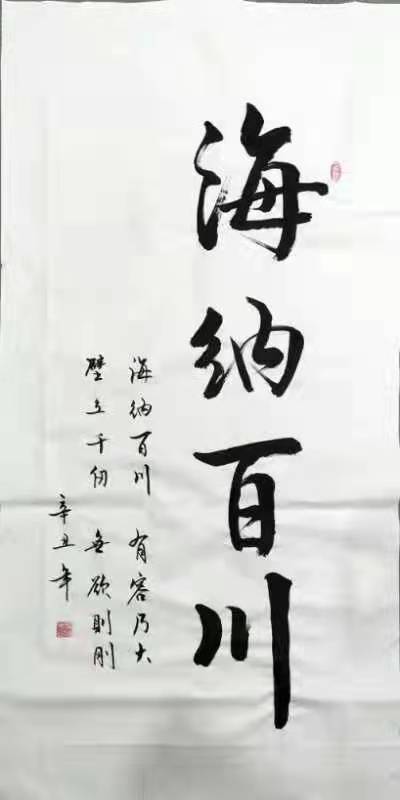 海纳百川
海纳百川 有容乃大
壁立千仞 无欲则刚
辛丑年